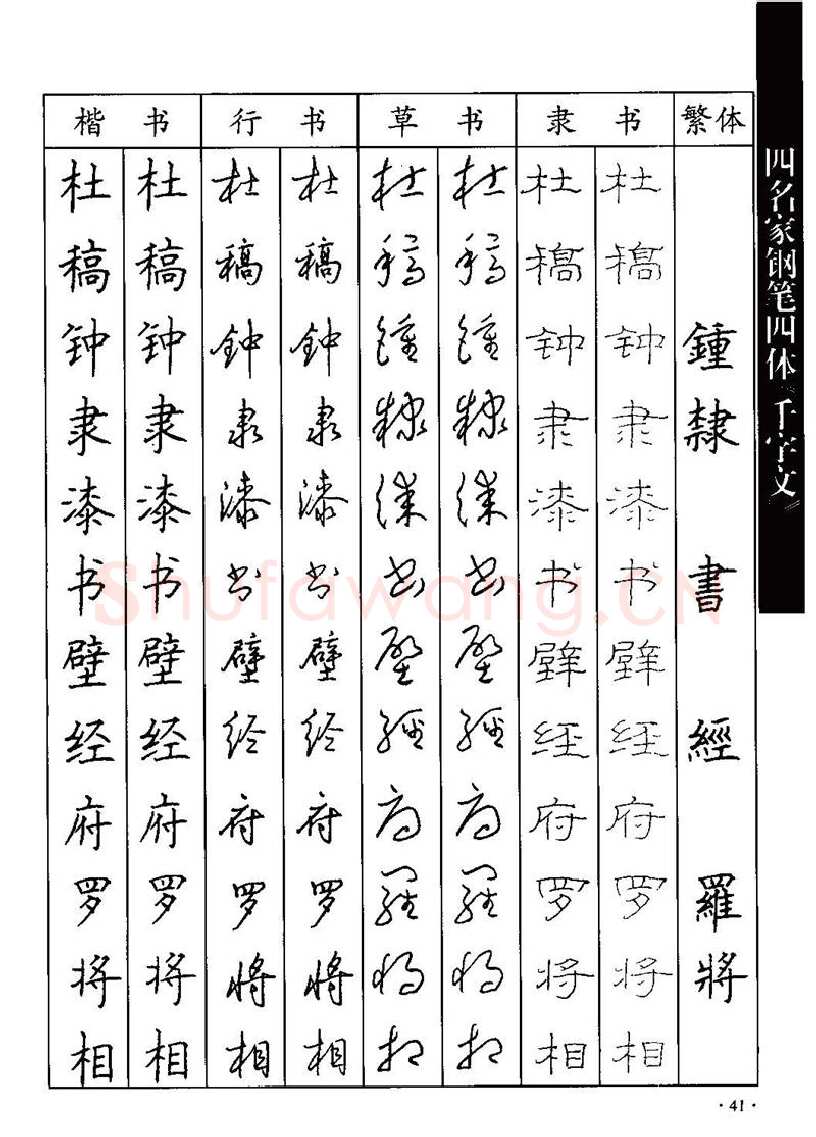 楷书 行书 草书 隶书 繁体
杜 杜 杜 杜 杜 杜 杜 杜
稿 稿 稿 稿 稿 稿 稿 稿
钟 钟 钟 钟 鍾 鍾 钟 钟 鍾
隶 隶 隶 隶 隸 隸 隶 隶 隸
漆 漆 漆 漆 漆 漆 漆 漆
书 书 书 书 书 书 书 书 書
壁 壁 壁 壁 壁 壁 壁 壁
经 经 经 经 經 經 经 经 經
府 府 府 府 府 府 府 府
罗 罗 罗 罗 羅 羅 罗 罗 羅
将 将 将 将 将 将 将 将 將
相 相 相 相 相 相 相 相
四名家钢笔四体《千字文》
Shufawang.CN
·41·